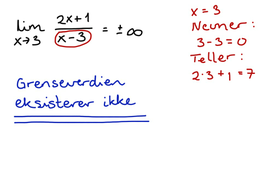 lim x→3 2x+1 / x-3 = ±∞
Grenseverdien
eksisterer ikke
x = 3
Nevner:
3-3=0
Teller:
2·3+1=7